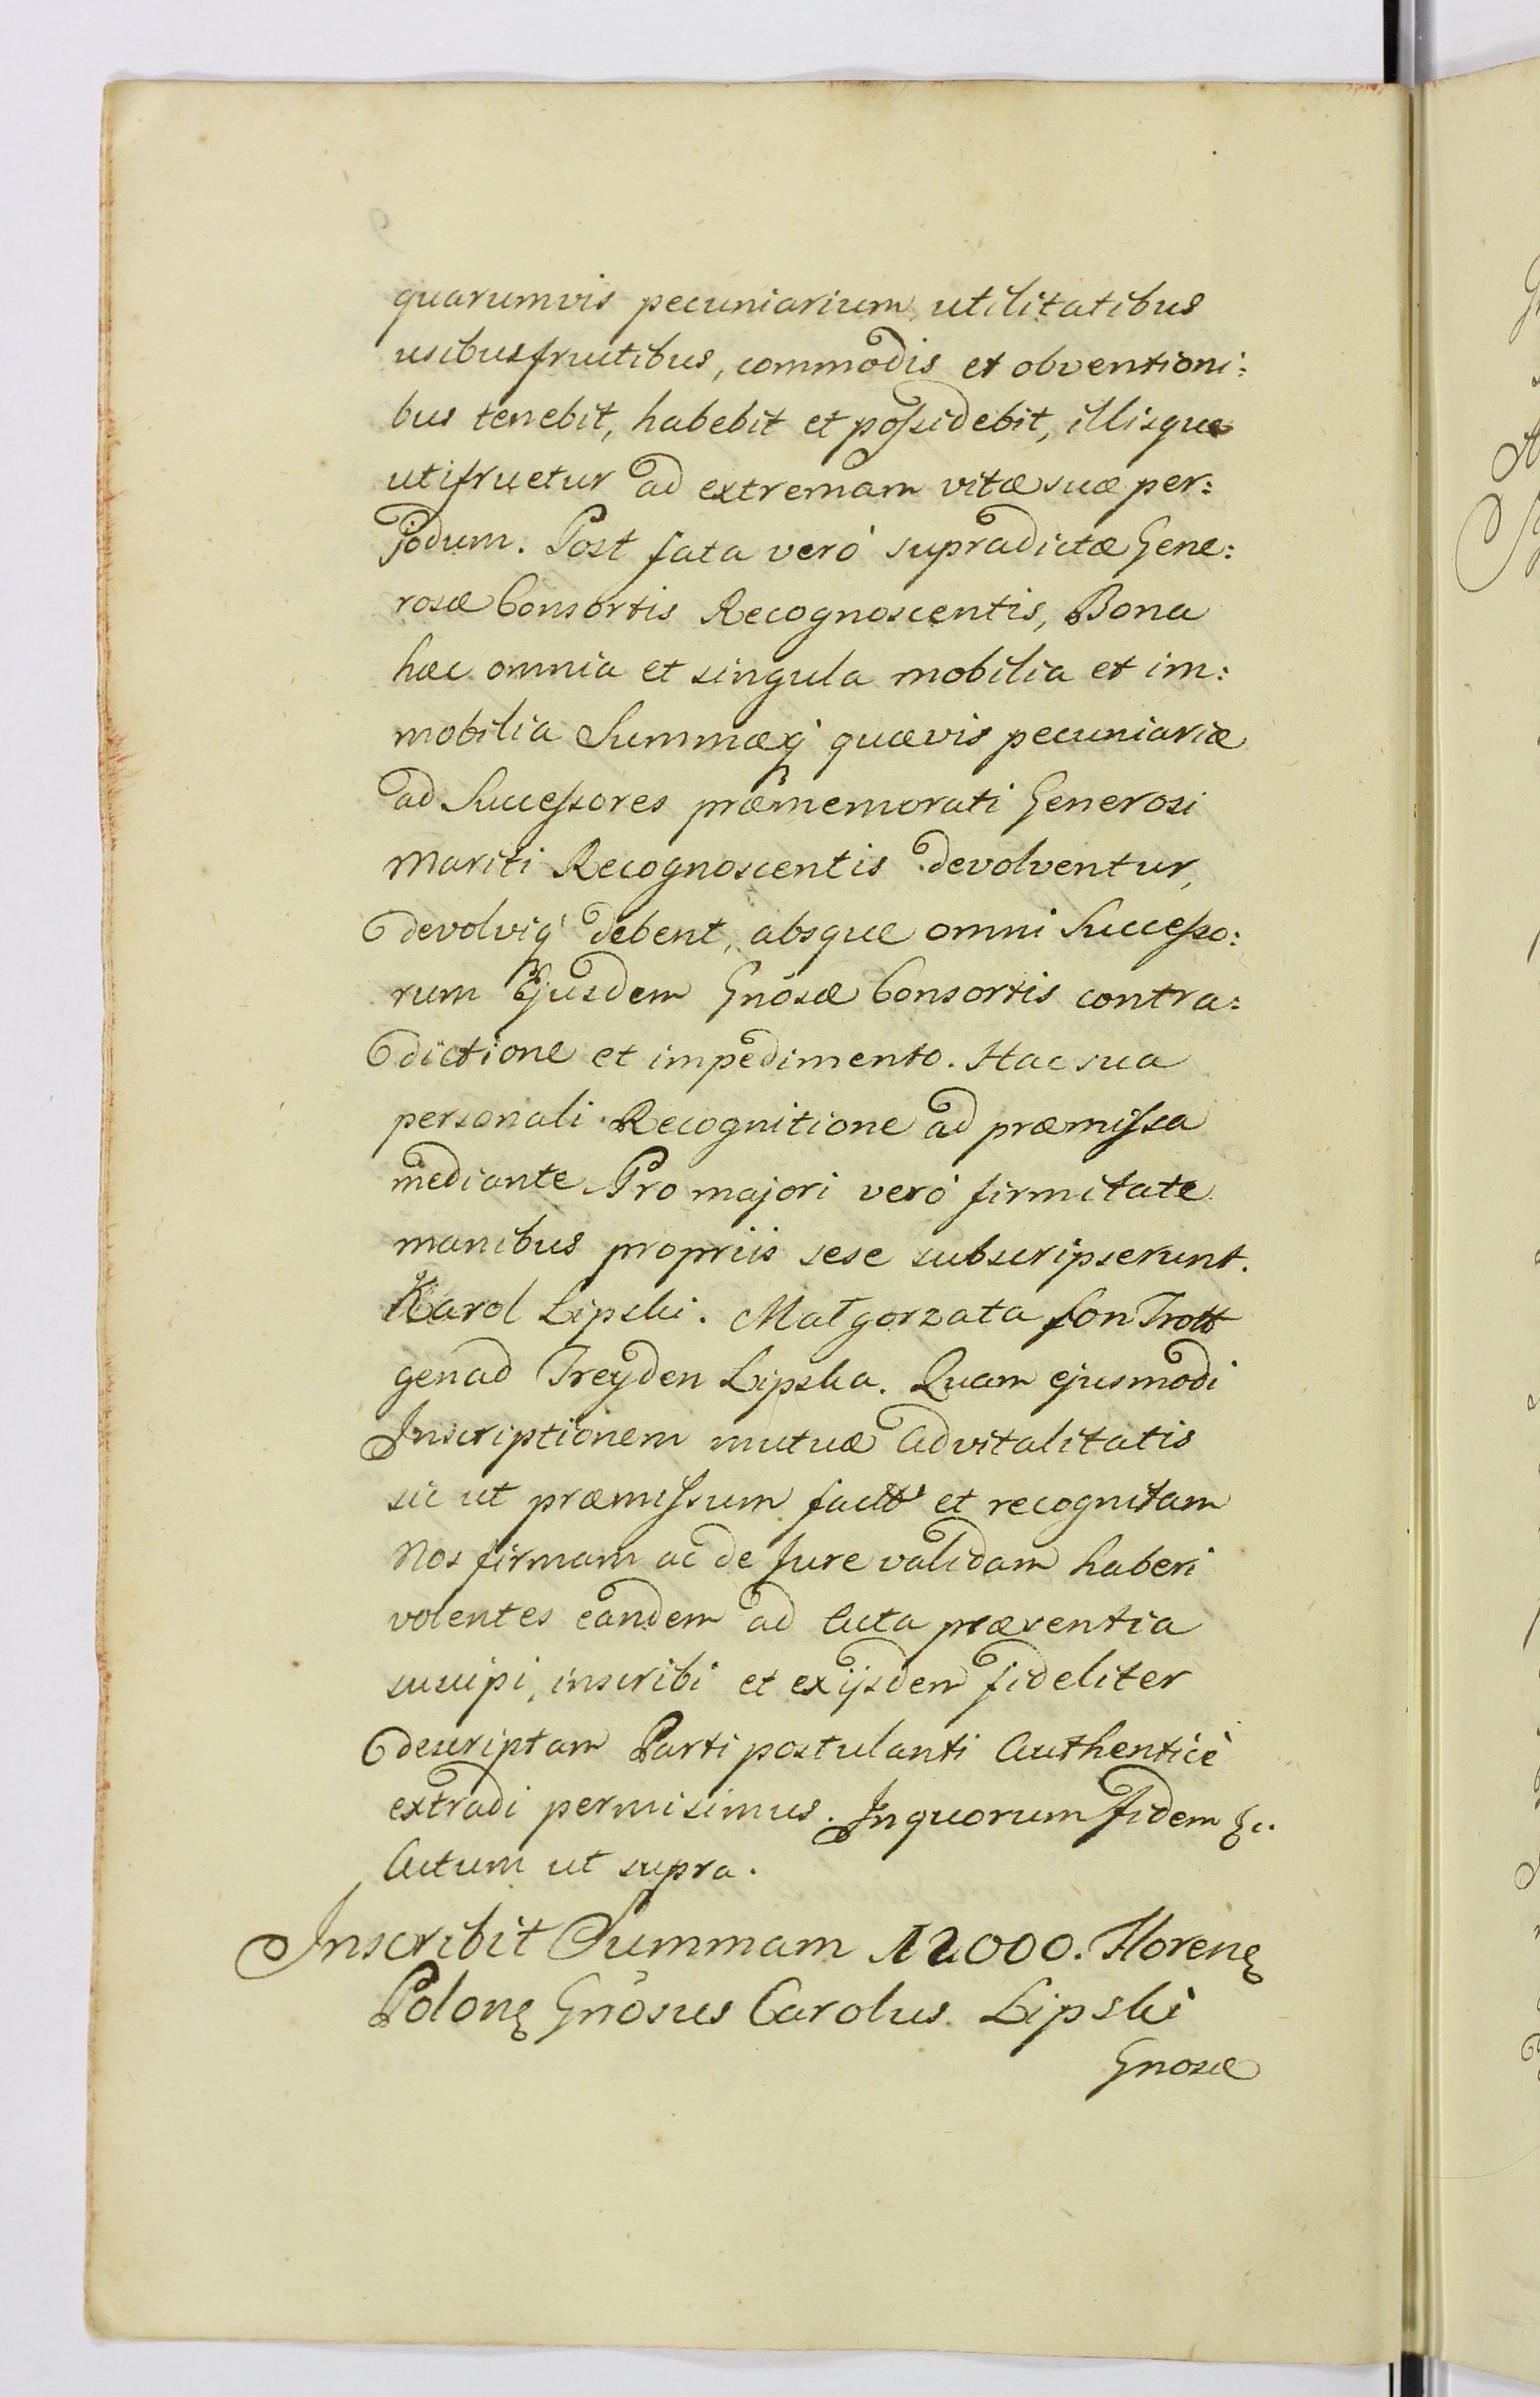 quarumvis pecuniarium utilitatibus
usibusfructibus, commodis et obventioni:
bus tenebit, habebit et possidebit, illisque
utifruetur ad extremam vitæ suæ per:
jodum. Post fata verò supradictæ Gene:
rosæ Consortis Recognoscentis, Bona
hæc omnia et singula mobilia et im:
mobilia Summæq' quævis pecuniariæ
ad Successores præmemorati Generosi
Mariti Recognoscentis devolventur,
devolviq' debent, absque omni Successo:
rum Ejusdem Gnosæ Consortis contra:
dictione et impedimento. Hac sua
personali Recognitione ad præmissa
mediante Pro majori verò firmitate
manibus propriis sese subscripserunt.
Karol Lipski. Małgorzata fon Trott
genad Treyden Lipska. Quam ejusmodi
Inscriptionem mutuæ Advitalitatis
sic ut præmissum et recognitam
Nos firmam ac de Jure validam haberi
volentes eandem ad Acta præsentia
suscipi, inscribi et exijsdem fideliter
descriptam Parti postulanti Authenticè
extradi permisimus. Inquorum fidem &c.
Actum ut supra.
Inscribit Summam 12000. Floren
Polon Gnosus Carolus Lipski
Gnosæ